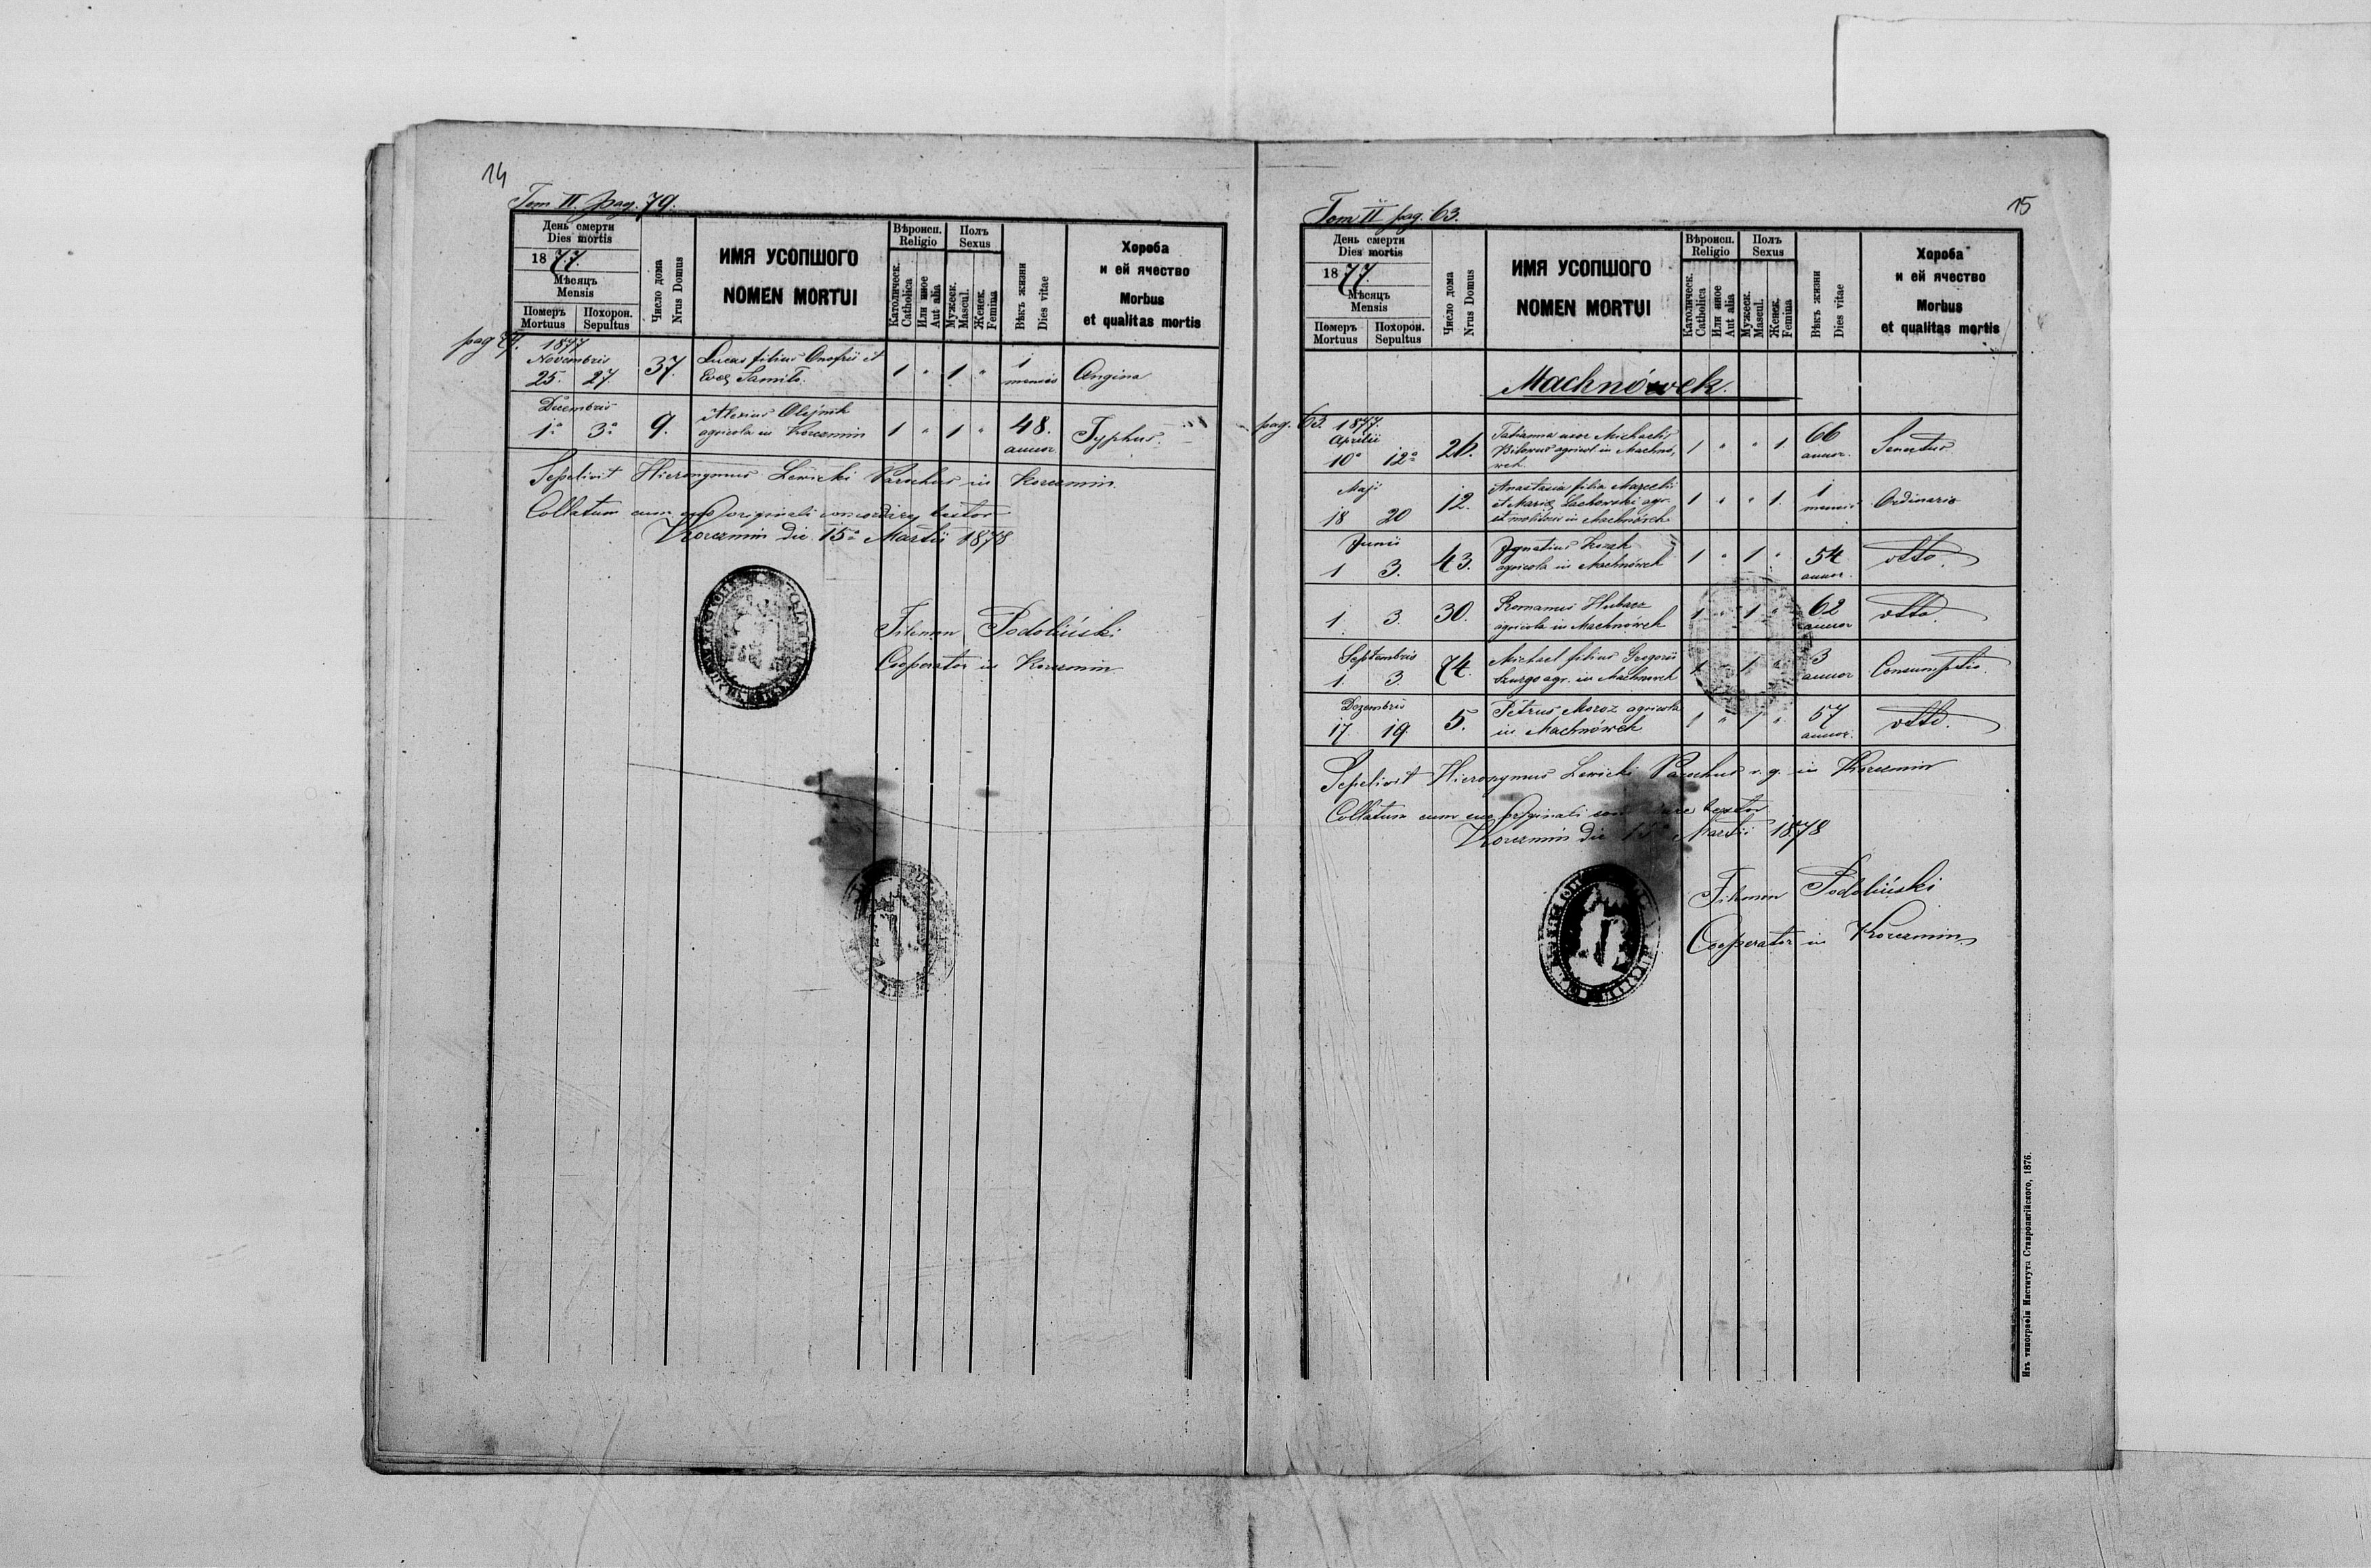 14
Tom II. pag. 79.
День смерти
Dies mortis
1877.
Мѣсяцъ
Mensis
Померъ
Mortuus
Похорон.
Sepultus
Число дома
Nrus Domus
ИМЯ УСОПШОГО
NOMEN MORTUI
Вѣроисп.
Religio
Католическ.
Catholica
Или иное
Aut alia
Полъ
Sexus
Мужеск.
Mascul.
Женск.
Femina
Вѣкъ жизни
Dies vitae
Хороба
и ей ячество
Morbus
et qualitas mortis
pag 79. 1877
Novembris
25. 27. 37. Lucas filius Onofrii et
Evae 1 " 1 " 1 mensis Angina
Decembris
1ª 3ª 9. Alexius Olejnik
agricola in Korczmin 1 " 1 " 48. annor. Typhus.
Sepelivit Hieronymus Lewicki Parochus in Korczmin
Collatum cum suo originali concordare testor
Korczmin die 15ª Martii 1878
Filemon Podoliński
Cooperator in Korczmin
15
Tom II pag. 63.
День смерти
Dies mortis
1877.
Мѣсяцъ
Mensis
Померъ
Mortuus
Похорон.
Sepultus
Число дома
Nrus Domus
ИМЯ УСОПШОГО
NOMEN MORTUI
Вѣроисп.
Religio
Католическ.
Catholica
Или иное
Aut alia
Полъ
Sexus
Мужеск.
Mascul.
Женск.
Femina
Вѣкъ жизни
Dies vitae
Хороба
и ей ячество
Morbus
et qualitas mortis
Machnówek.
pag. 63. 1877.
Aprilii
10ª 12ª 26. Tatianna uxor Michaelis
agricol. in Machnó,
wek 1 " " 1 66 annor. Senectus
Maji
18 20 12. Anastasia filia
et Mariae Lachowski agr.
et in Machnówek 1 " " 1. 1 mensis Ordinaria
Junii
1 3. 43. Ignatius Kozak
agricola in Machnówek 1 " 1 " 54 annor. dtto.
1. 3. 30. Romanus Hubacz
agricola in Machnówek 1 " 1 " 62 annor dtto.
Septembris
1. 3. 74. Michael filius Gregorii
Szurgo agr. in Machnowek 1 " 1 " 3 annor Consumptio.
Dezembris
17 19. 5. Petrus Moroz agricola
in Machnówek 1 " 1 " 57 annor. dtto.
Sepelivit Hieronymus Lewicki Parochus r. g. in Korczmin
Collatum cum suo Originali testor
Korczmin die 15 Martii 1878
Filemon Podoliński
Cooperator in Korczmin
Изъ типографіи Института Ставропигійского, 1876.